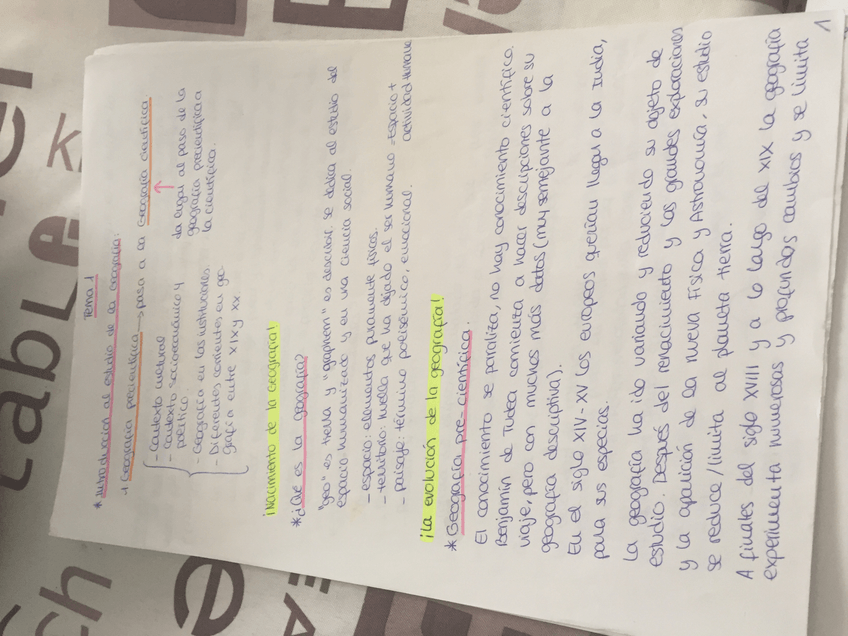 Tema 1
* Introducción al estudio de la Geografía:
+ Geografía precientífica → pasa a la Geografía científica
- Contexto cultural
- Contexto socioeconómico y
político.
- Geografía en las instituciones
- Diferentes corrientes en geo-
grafía entre XIX y XX.
da lugar al paso de la
geografía precientífica a
la científica.
¡Nacimiento de la Geografía!
* ¿Qué es la Geografía?
"geo" es tierra y "graphein" es describir. Se dedica al estudio del
espacio humanizado y es una ciencia social.
- espacio: elementos puramente físicos.
- territorio: huella que ha dejado el ser humano = Espacio +
actividad humana
- paisaje: término polisémico, emocional.
¡La evolución de la geografía!
* Geografía pre-científica.
El conocimiento se paraliza, no hay conocimiento científico.
Benjamín de Tudea comienza a hacer descripciones sobre su
viaje, pero con muchos más datos (muy semejante a la
geografía descriptiva).
En el siglo XIV-XV los europeos querían llegar a la India,
para sus especias.
La geografía ha ido variando y reduciendo su objeto de
estudio. Después del renacimiento y las grandes exploraciones
y la aparición de la nueva Física y Astronomía, su estudio
se reduce/limita al planeta tierra.
A finales del siglo XVIII y a lo largo del XIX la geografía
experimenta numerosas y profundos cambios y se limita
1